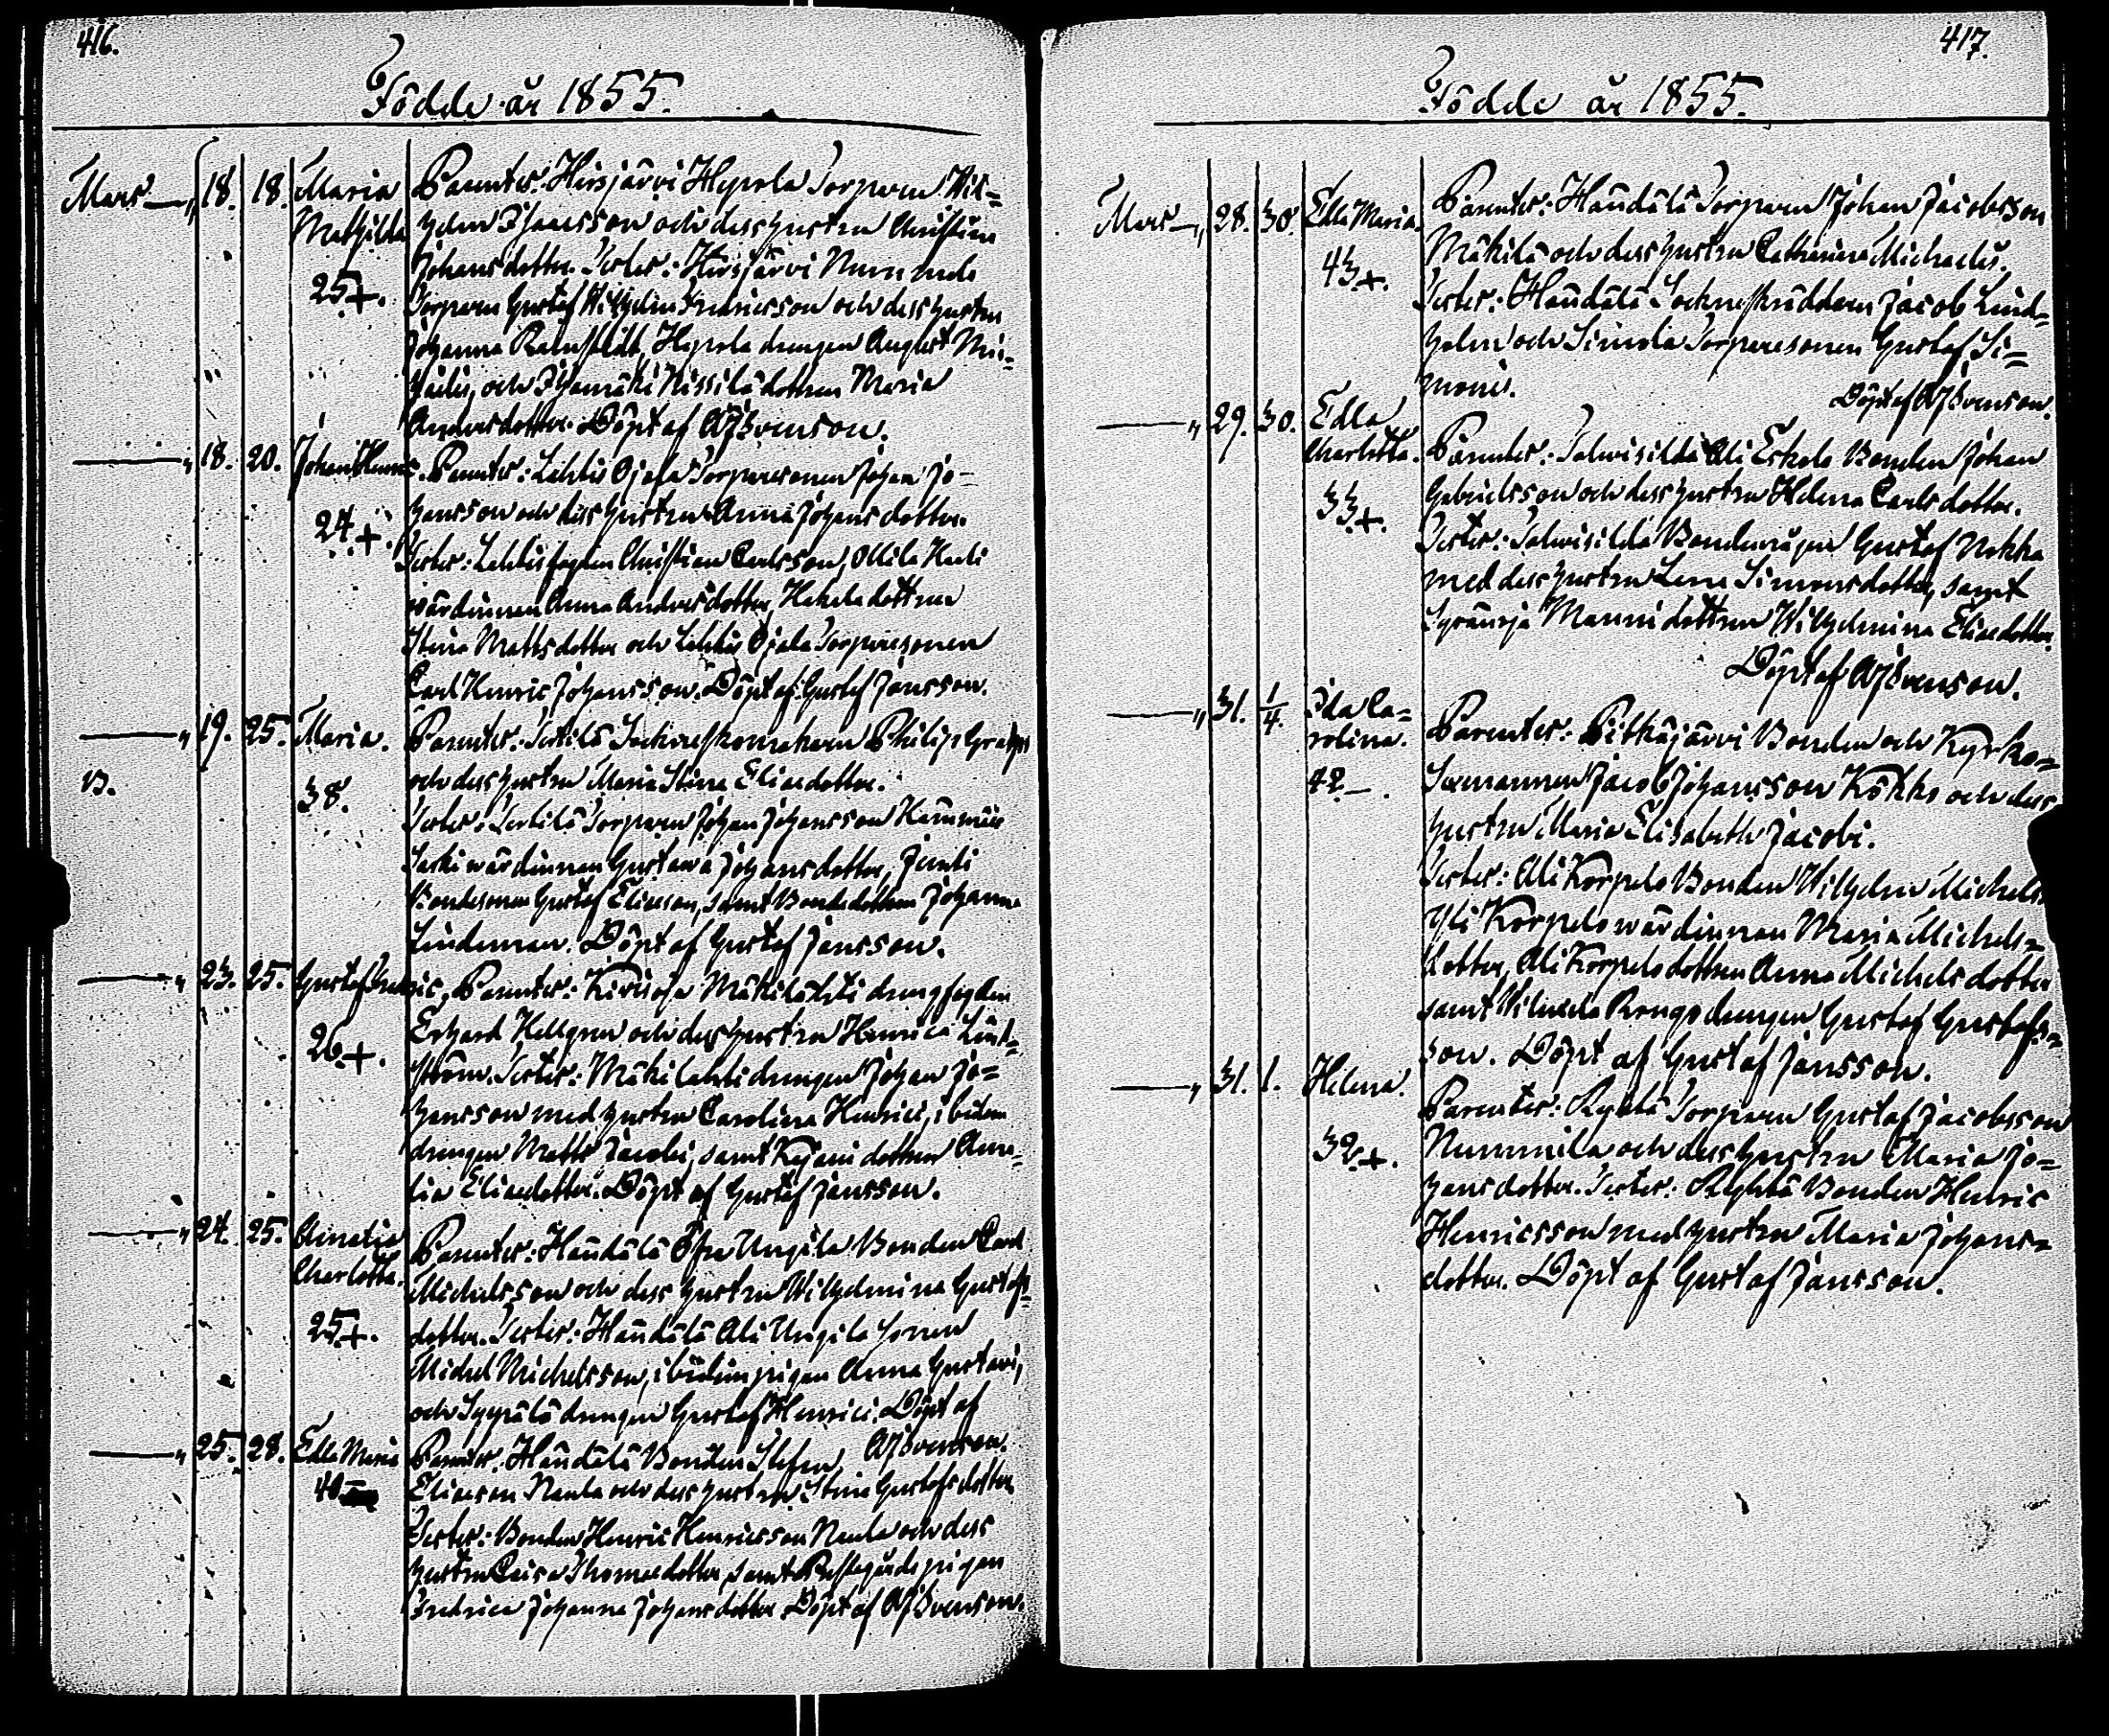 416.
Födde år 1855.
Mars — „ 18. 18. Maria Parenter: Hirsjärvi Hepola Torparen Wil=
Mathilda helm Thomsson och dess hustru Christina
Johansdotter. Tester: Hirsjärvi Nummela
25+. Torparen Gustaf Wilhelm Fredricsson och dess hustru
Johanna Rehnfeldt, Hepola drengen August Mi=
och Nissilä dottren Maria
Andersdotter. Döpt af AJSvenson.
— „ 18. 20. Johan Henric. Parenter: Lahtis Ojala Torparesonen Johan Jo-
hansson och dess hustru Anna Johansdotter.
24+. Tester: Lahtis fogden Christian Carlsson, Ollila
wärdinnan Anna Andersdotter, Hakola dottren
Stina Mattsdotter och Lahtis Ojala Torparesonen
Carl Henric Johansson. Döpt af Gustaf Jansson.
— „ 19. 25. Maria. Parenter: Sockneskomakaren Philip
B. och dess hustru Maria Stina Eliaedotter.
38. Tester: Torparen Johan Johansson
wärdinnan Gustawa Johansdotter, Junti
Bondesonen Gustaf Eliasson, samt Bondedottren Johanna
Lindeman. Döpt af Gustaf Jansson.
— „ 23. 25. Gustaf Fredric. Parenter: Kirjola Mäkilähti drengfogden
Erhard Hellgren och dess hustru Henrica Lind=
26+. ström. Tester: Mäkilähti drengen Johan Jo=
hansson med hustru Carolina Henrici, ibidem
drengen Matts Jacobi, samt dottren Ama=
lia Eliaedotter. Döpt af Gustaf Jansson.
— „ 24. 25. Amalia Parenter: Haudälä Öfre Ungila Bonden Carl
Charlotta. Michelsson och dess hustru Wilhelmina Gustafs=
25+. dotter. Tester: Haudälä Ali Ungila sonen
Michel Michelsson, ibidem pigan Anna Gustavi,
och Syrjälä drengen Gustaf Henrici. Döpt af
AJSvenson.
— „ 25. 28. Edla Maria Parenter: Haudälä Bonden Stefan
40 Eliasson Naula och dess hustru Stina Gustafsdotter
Tester: Bonden Henric Henricsson Naula och dess
hustru Caisa Thomaedotter, samt Prestgårds pigan
Fredrica Johanna Johansdotter. Döpt af AJSvenson.
417.
Födde år 1855.
Mars — „ 28. 30. Edla Maria. Parenter: Haudälä Torparen Johan Jacobsson
Mäkilä och dess hustru Catharina Michaelis.
43+. Tester: Haudälä Sockneskräddaren Jacob Lind=
holm och Simola Torparesonen Gustaf Si=
monis. Döpt af AJSvenson.
— „ 29. 30. Edla
Charlotta. Parenter: Talwisilda Ali Erkola Bonden Johan
Gabrielsson och dess hustru Helena Carlsdotter.
33+. Tester: Talwisilda Bondemågen Gustaf Nokka
med dess hustru Lena Simonsdotter, samt
Manni dottren Wilhelmina Eliaedotter.
Döpt af AJSvenson.
— „ 31. 1/4. Ida Ca=
rolina. Parenter: Pitkäjärvi Bonden och Kyrko=
42 —. Sexmannen Jacob Johansson Kökkö och dess
hustru Maria Elisabeth Jacobi.
Tester: Ali Korpela Bonden Wilhelm Michels
Yli Korpela wärdinnan Maria Michels=
dotter, Ali Korpela dottren Anna Michelsdotter
samt drengen Gustaf Gustafs=
son. Döpt af Gustaf Jansson.
— „ 31. 1. Helena. Parenter: Torparen Gustaf Jacobsson
32+. Nummila och dess hustru Maria Jo=
hansdotter. Tester: Bonden Henric
Henricsson med hustru Maria Johans=
dotter. Döpt af Gustaf Jansson.